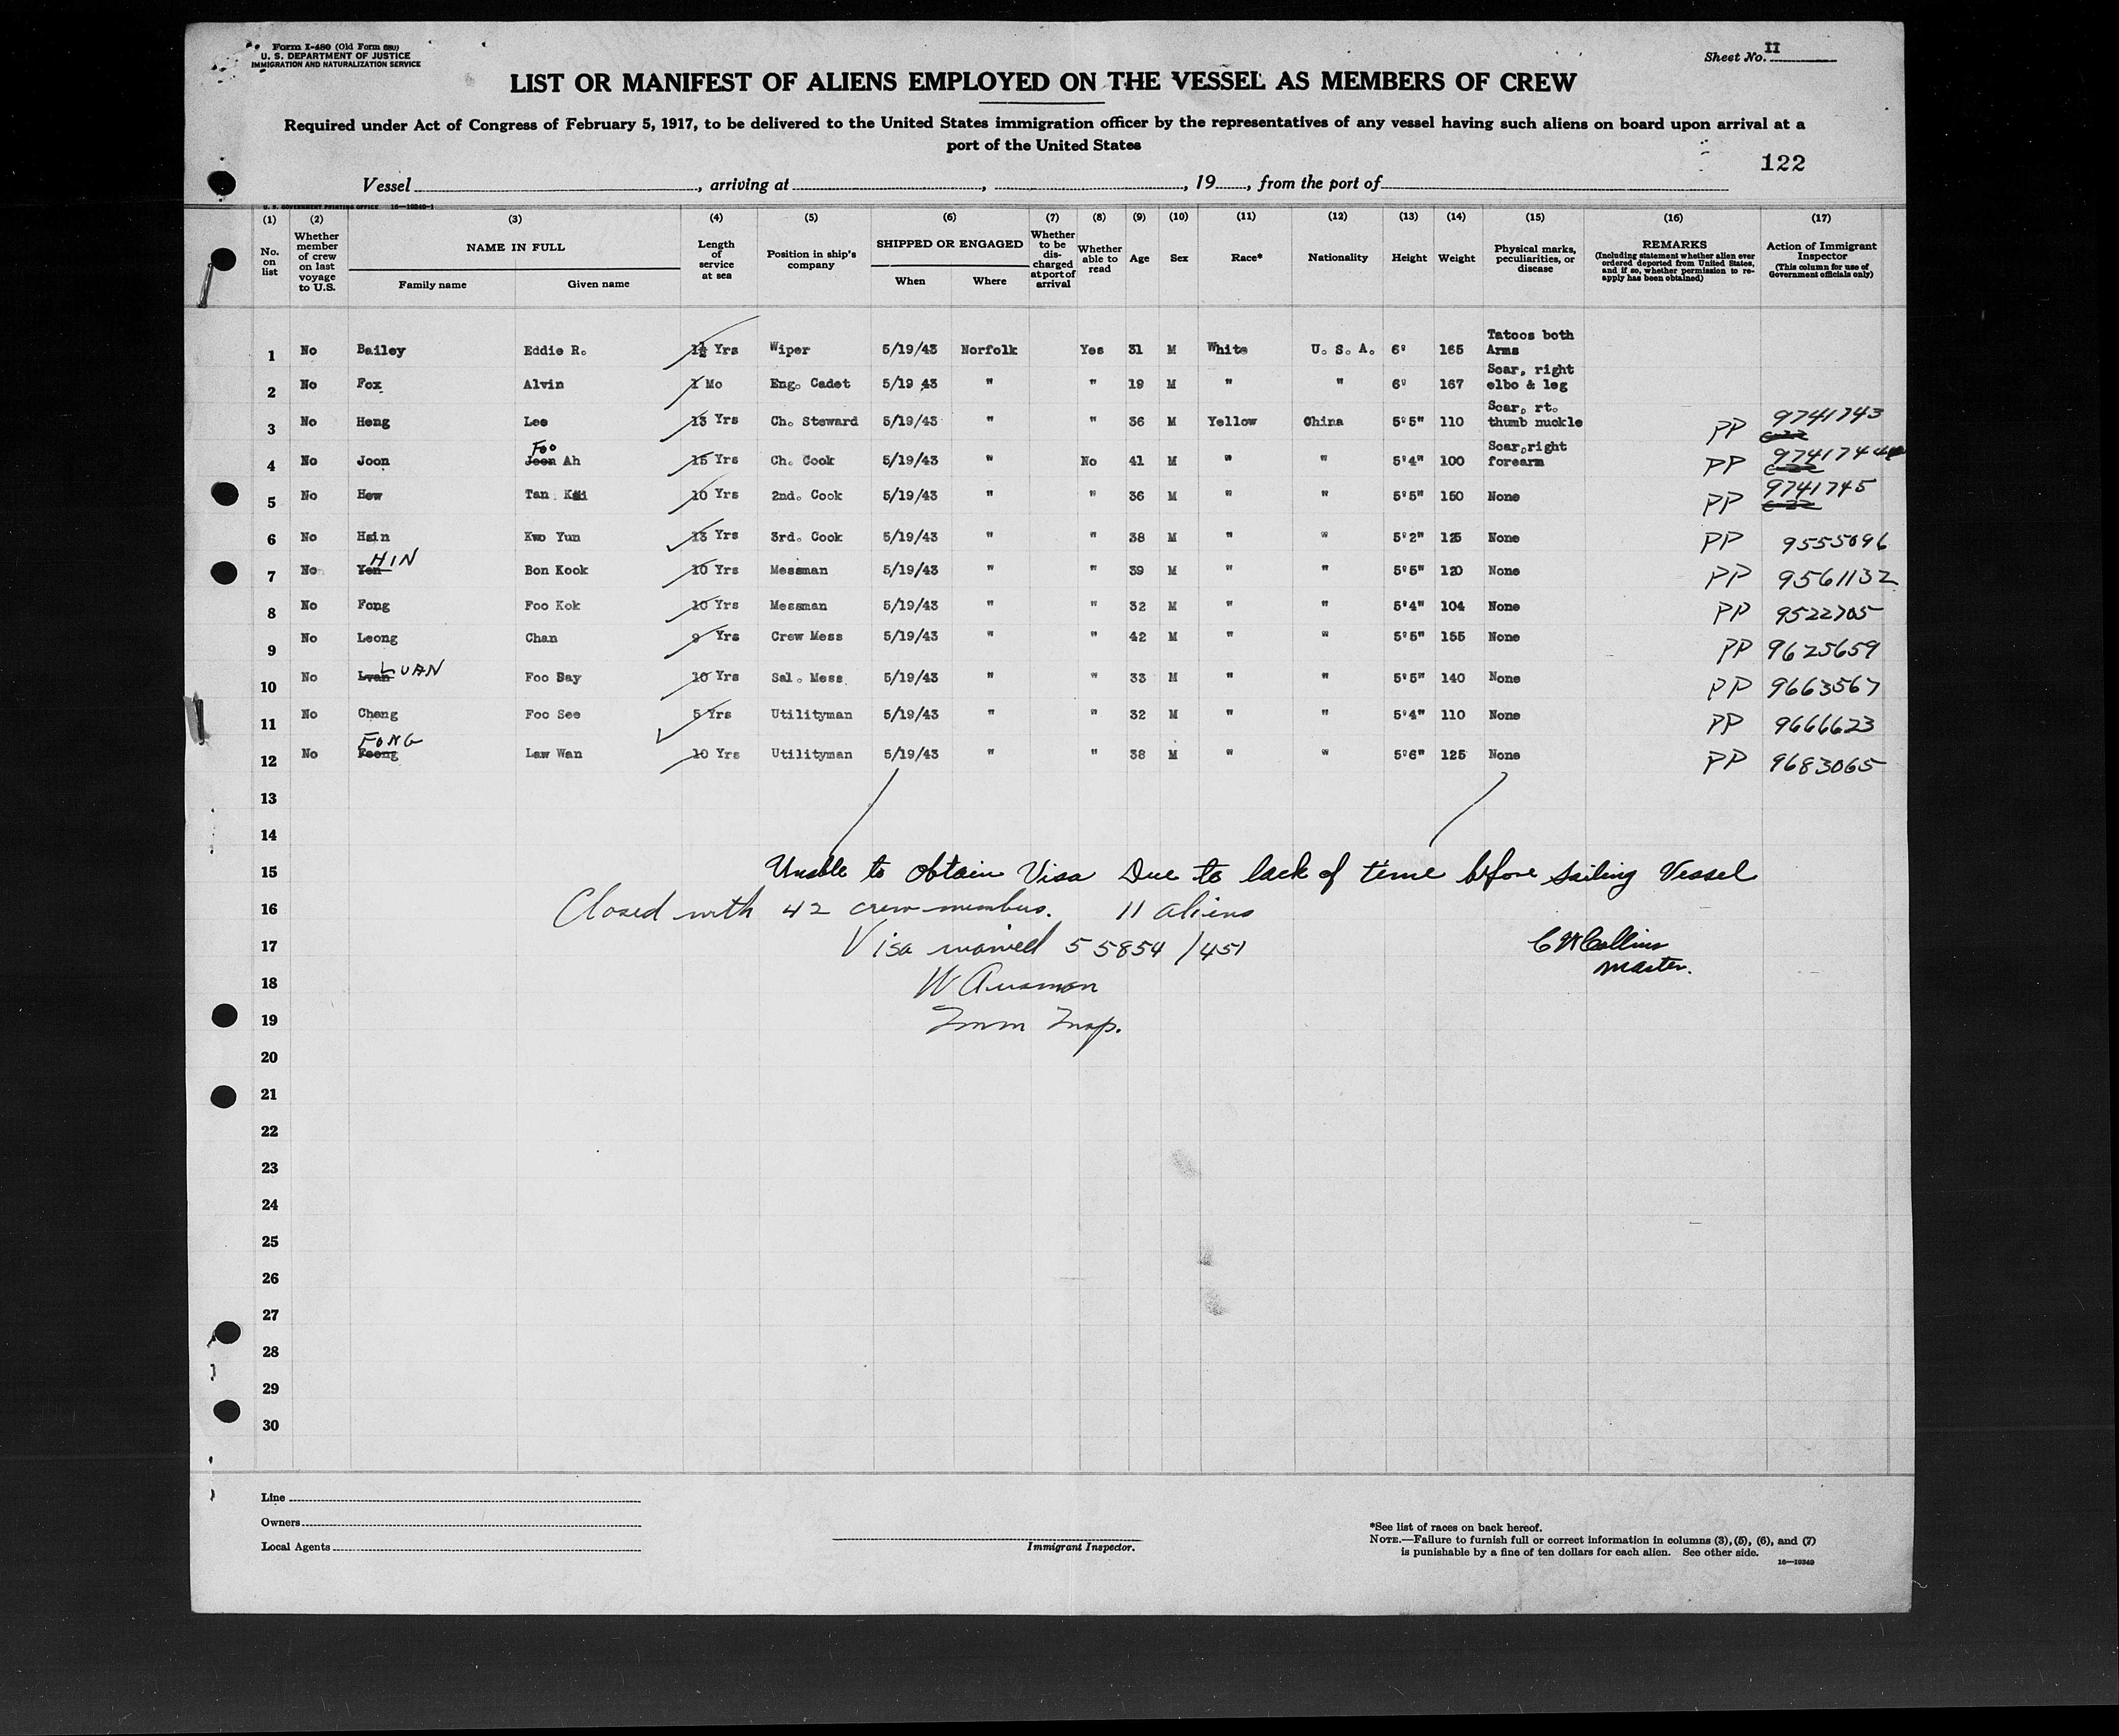 Form I-480 (Old Form 680)
U. S. DEPARTMENT OF JUSTICE
IMMIGRATION AND NATURALIZATION SERVICE
Sheet No. II
LIST OR MANIFEST OF ALIENS EMPLOYED ON THE VESSEL AS MEMBERS OF CREW
Required under Act of Congress of February 5, 1917, to be delivered to the United States immigration officer by the representatives of any vessel having such aliens on board upon arrival at a
port of the United States
122
Vessel, arriving at, , 19, from the port of
U. S. GOVERNMENT PRINTING OFFICE 16—19349-1
(1) No. on list
(2) Whether member of crew on last voyage to U.S.
(3) NAME IN FULL Family name Given name
(4) Length of service at sea
(5) Position in ship's company
(6) SHIPPED OR ENGAGED When Where
(7) Whether to be discharged at port of arrival
(8) Whether able to read
(9) Age
(10) Sex
(11) Race*
(12) Nationality
(13) Height
(14) Weight
(15) Physical marks, peculiarities, or disease
(16) REMARKS (Including statement whether alien ever ordered deported from United States, and if so, whether permission to reapply has been obtained)
(17) Action of Immigrant Inspector (This column for use of Government officials only)
1 No Bailey Eddie R. 1½ Yrs Wiper 5/19/43 Norfolk Yes 31 M White U. S. A. 6' 165 Tatoos both Arms
2 No Fox Alvin 1 Mo Eng. Cadet 5/19 43 " " 19 M " " 6' 167 Scar, right elbo & leg
3 No Heng Lee 13 Yrs Ch. Steward 5/19/43 " " 36 M Yellow China 5'5" 110 Scar, rt. thumb nuckle PP 9741743
4 No Joon Joon Foo Ah 15 Yrs Ch. Cook 5/19/43 " No 41 M " " 5'4" 100 Scar, right forearm PP 9741744
5 No Hew Tan Kai 10 Yrs 2nd. Cook 5/19/43 " " 36 M " " 5'5" 150 None PP 9741745
6 No Hsin Kwo Yun 13 Yrs 3rd. Cook 5/19/43 " " 38 M " " 5'2" 125 None PP 9555096
7 No Yen HIN Bon Kook 10 Yrs Messman 5/19/43 " " 39 M " " 5'5" 120 None PP 9561132
8 No Fong Foo Kok 10 Yrs Messman 5/19/43 " " 32 M " " 5'4" 104 None PP 9522705
9 No Leong Chan 9 Yrs Crew Mess 5/19/43 " " 42 M " " 5'5" 155 None PP 9625659
10 No Lvan LUAN Foo Say 10 Yrs Sal. Mess 5/19/43 " " 33 M " " 5'5" 140 None PP 9663567
11 No Cheng Foo See 5 Yrs Utilityman 5/19/43 " " 32 M " " 5'4" 110 None PP 9666623
12 No Foong FONG Law Wan 10 Yrs Utilityman 5/19/43 " " 38 M " " 5'6" 125 None PP 9683065
13
14
15 Unable to obtain Visa Due to lack of time before sailing Vessel
16 Closed with 42 crew members. 11 aliens
17 Visa waived 55854/451 C W Collins
master.
18
19 Imm Insp.
20
21
22
23
24
25
26
27
28
29
30
Line
Owners
Local Agents
Immigrant Inspector.
*See list of races on back hereof.
NOTE.—Failure to furnish full or correct information in columns (3), (5), (6), and (7)
is punishable by a fine of ten dollars for each alien. See other side.
16—19349